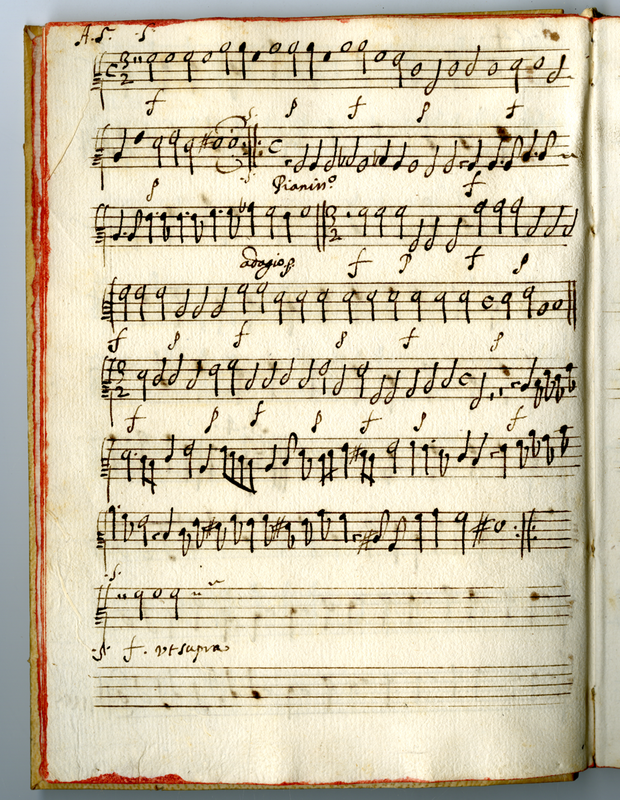 A. S. S
3 2
f p f p f
p Pianiss.o f
3 2
adagio p. f p f p
f p f p f p
3 2
f p f p f p f
S.
S. f. vt supra